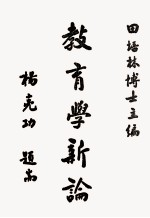 田培林博士主編
教育學新論
楊亮功題耑